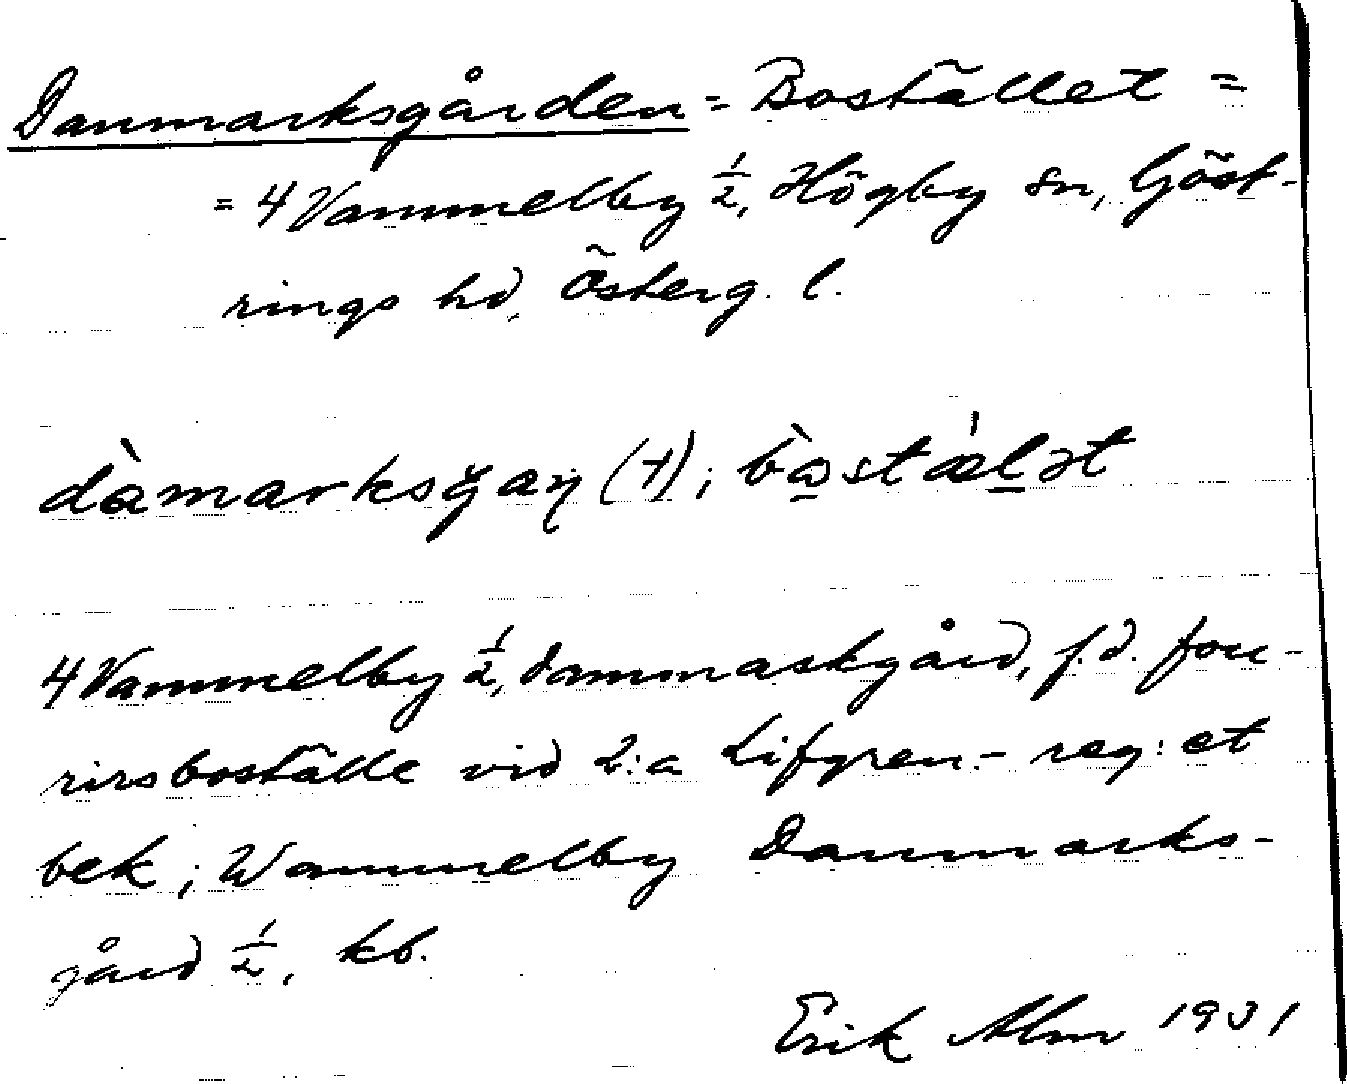 Danmarksgården = Bostället =
= 4 Vammelby ½, Högby sn, Göst-
rings hd, Österg. l.
dàmarksgaŋ (†); bòstæ̀lət
4 Vammelby ½, dammaskgård, f.d. fou-
rirsboställe vid 2:a Lifgren.- reg:et
bek; Wammelby Danmarks-
gård ½, kb.
Erik Alm 1931